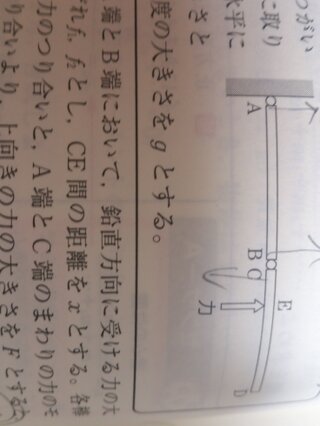 つがい
に取り
水平に
さと
A
B C
E
D
力
度の大きさを g とする。
端と B 端において，鉛直方向に受ける力の大
れ f₁, f₂ とし，CE間の距離を x とする。各棒
力のつり合いと，A 端と C 端のまわりの力のモ
り合いより，上向きの力の大きさを F とする